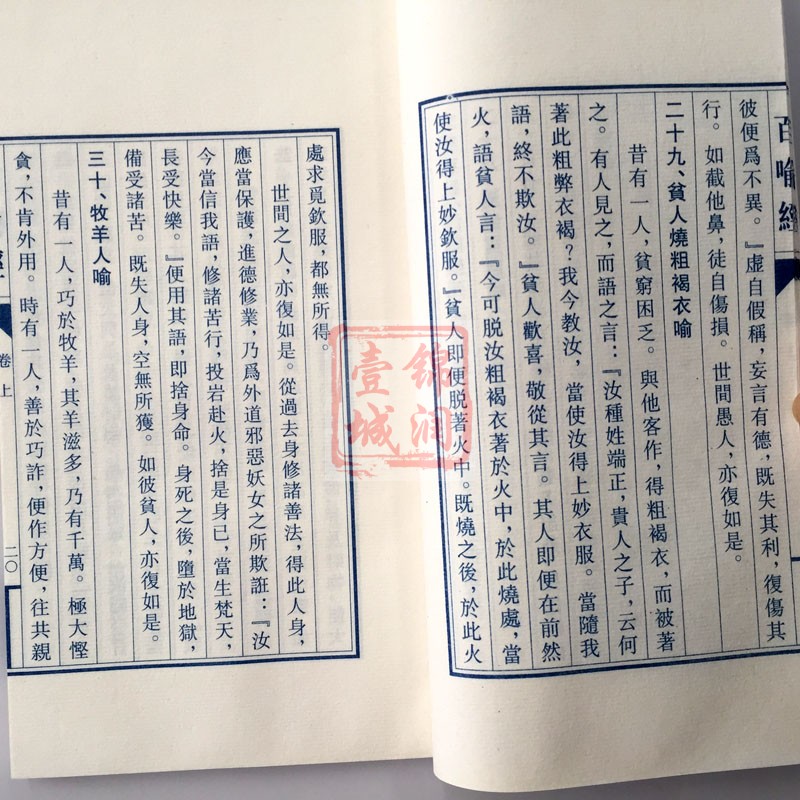 百喻經
彼便爲不異。』虛自假稱，妄言有德，既失其利，復傷其
行。如截他鼻，徒自傷損。世間愚人，亦復如是。
二十九、貧人燒粗褐衣喻
昔有一人，貧窮困乏。與他客作，得粗褐衣，而被著
之。有人見之，而語之言：『汝種姓端正，貴人之子，云何
著此粗弊衣褐？我今教汝，當使汝得上妙衣服。當隨我
語，終不欺汝。』貧人歡喜，敬從其言。其人即便在前然
火，語貧人言：『今可脱汝粗褐衣著於火中，於此燒處，當
使汝得上妙欽服。』貧人即便脱著火中。既燒之後，於此火
處求覓欽服，都無所得。
世間之人，亦復如是。從過去身修諸善法，得此人身，
應當保護，進德修業，乃爲外道邪惡妖女之所欺誑：『汝
今當信我語，修諸苦行，投岩赴火，捨是身已，當生梵天，
長受快樂。』便用其語，即捨身命。身死之後，墮於地獄，
備受諸苦。既失人身，空無所獲。如彼貧人，亦復如是。
三十、牧羊人喻
昔有一人，巧於牧羊，其羊滋多，乃有千萬。極大慳
貪，不肯外用。時有一人，善於巧詐，便作方便，往共親
經
卷上
二〇
錦润
壹城